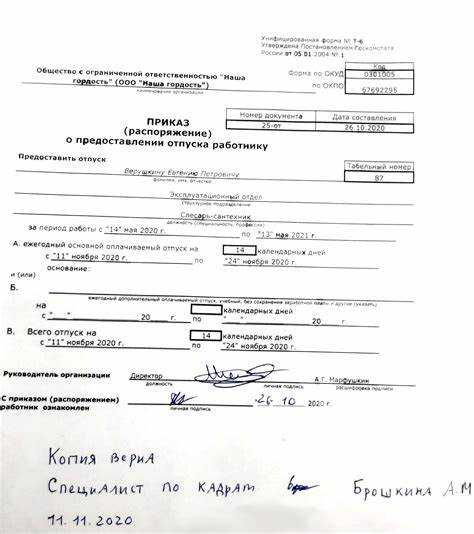 Унифицированная форма № Т-6
Утверждена Постановлением Госкомстата
России от 05.01 2004 № 1
Код
Форма по ОКУД 0301005
Общество с ограниченной ответственностью "Наша гордость" (ООО "Наша гордость")
по ОКПО 67692295
наименование организации
Номер документа Дата составления
25-от 26.10.2020
ПРИКАЗ
(распоряжение)
о предоставлении отпуска работнику
Предоставить отпуск
Табельный номер
Верушкину Евгению Петровичу 87
фамилия, имя, отчество
Эксплуатационный отдел
(структурное подразделение
Слесарь-сантехник
должность (специальность, профессия)
за период работы с "14" мая 2020 г. по "13" мая 2021 г.
А. ежегодный основной оплачиваемый отпуск на 14 календарных дней
с "11" ноября 2020 г. по "24" ноября 2020 г.
основание:
и (или)
Б.
ежегодный дополнительный оплачиваемый отпуск, учебный, без сохранения заработной платы и другие (указать)
на календарных дней
с " " 20 г. по " " 20 г.
В. Всего отпуск на 14 календарных дней
с "11" ноября 2020 г. по "24" ноября 2020 г.
Руководитель организации Директор А.Г. Марфушкин
должность личная подпись расшифровка подписи
С приказом (распоряжением)
работник ознакомлен 26.10 2020 г.
личная подпись
Копия верна
Специалист по кадрам Брошкина А.М
11.11.2020